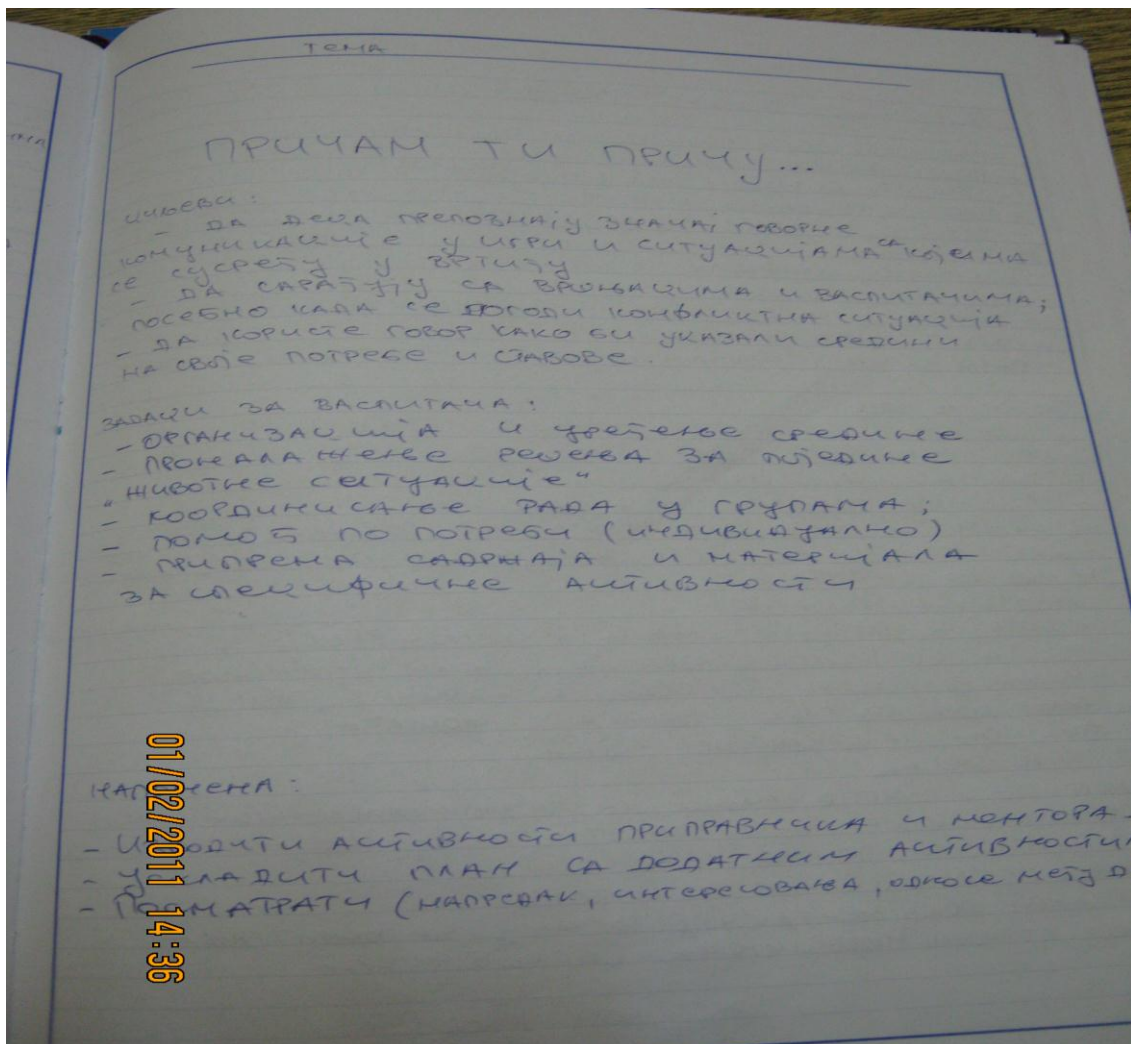 ТЕМА
ПРИЧАМ ТИ ПРИЧУ...
ЦИЉЕВИ:
- ДА ДЕЦА ПРЕПОЗНАЈУ ЗНАЧАЈ ГОВОРНЕ
КОМУНИКАЦИЈЕ У ИГРИ И СИТУАЦИЈАМА СА КОЈИМА
СЕ СУСРЕЋУ У ВРТИЋУ
- ДА САРАЂУЈУ СА ВРШЊАЦИМА И ВАСПИТАЧИМА;
ПОСЕБНО КАДА СЕ ДОГОДИ КОНФЛИКТНА СИТУАЦИЈА
- ДА КОРИСТЕ ГОВОР КАКО БИ УКАЗАЛИ СРЕДИНИ
НА СВОЈЕ ПОТРЕБЕ И СТАВОВЕ.
ЗАДАЦИ ЗА ВАСПИТАЧА:
- ОРГАНИЗАЦИЈА И УРЕЂЕЊЕ СРЕДИНЕ
- ПРОНАЛАЖЕЊЕ РЕШЕЊА ЗА ПОЈЕДИНЕ
"ЖИВОТНЕ СИТУАЦИЈЕ"
- КООРДИНИСАЊЕ РАДА У ГРУПАМА;
- ПОМОЋ ПО ПОТРЕБИ (ИНДИВИДУАЛНО)
- ПРИПРЕМА САДРЖАЈА И МАТЕРИЈАЛА
ЗА СПЕЦИФИЧНЕ АКТИВНОСТИ
НАПОМЕНА:
- АКТИВНОСТИ ПРИПРАВНИКА И МЕНТОРА
- УСКЛАДИТИ ПЛАН СА ДОДАТНИМ АКТИВНОСТИМ
- ПОСМАТРАТИ (НАПРЕДАК, ИНТЕРЕСОВАЊА, ОДНОСЕ МЕЂУ Д
01/02/2011 14:36